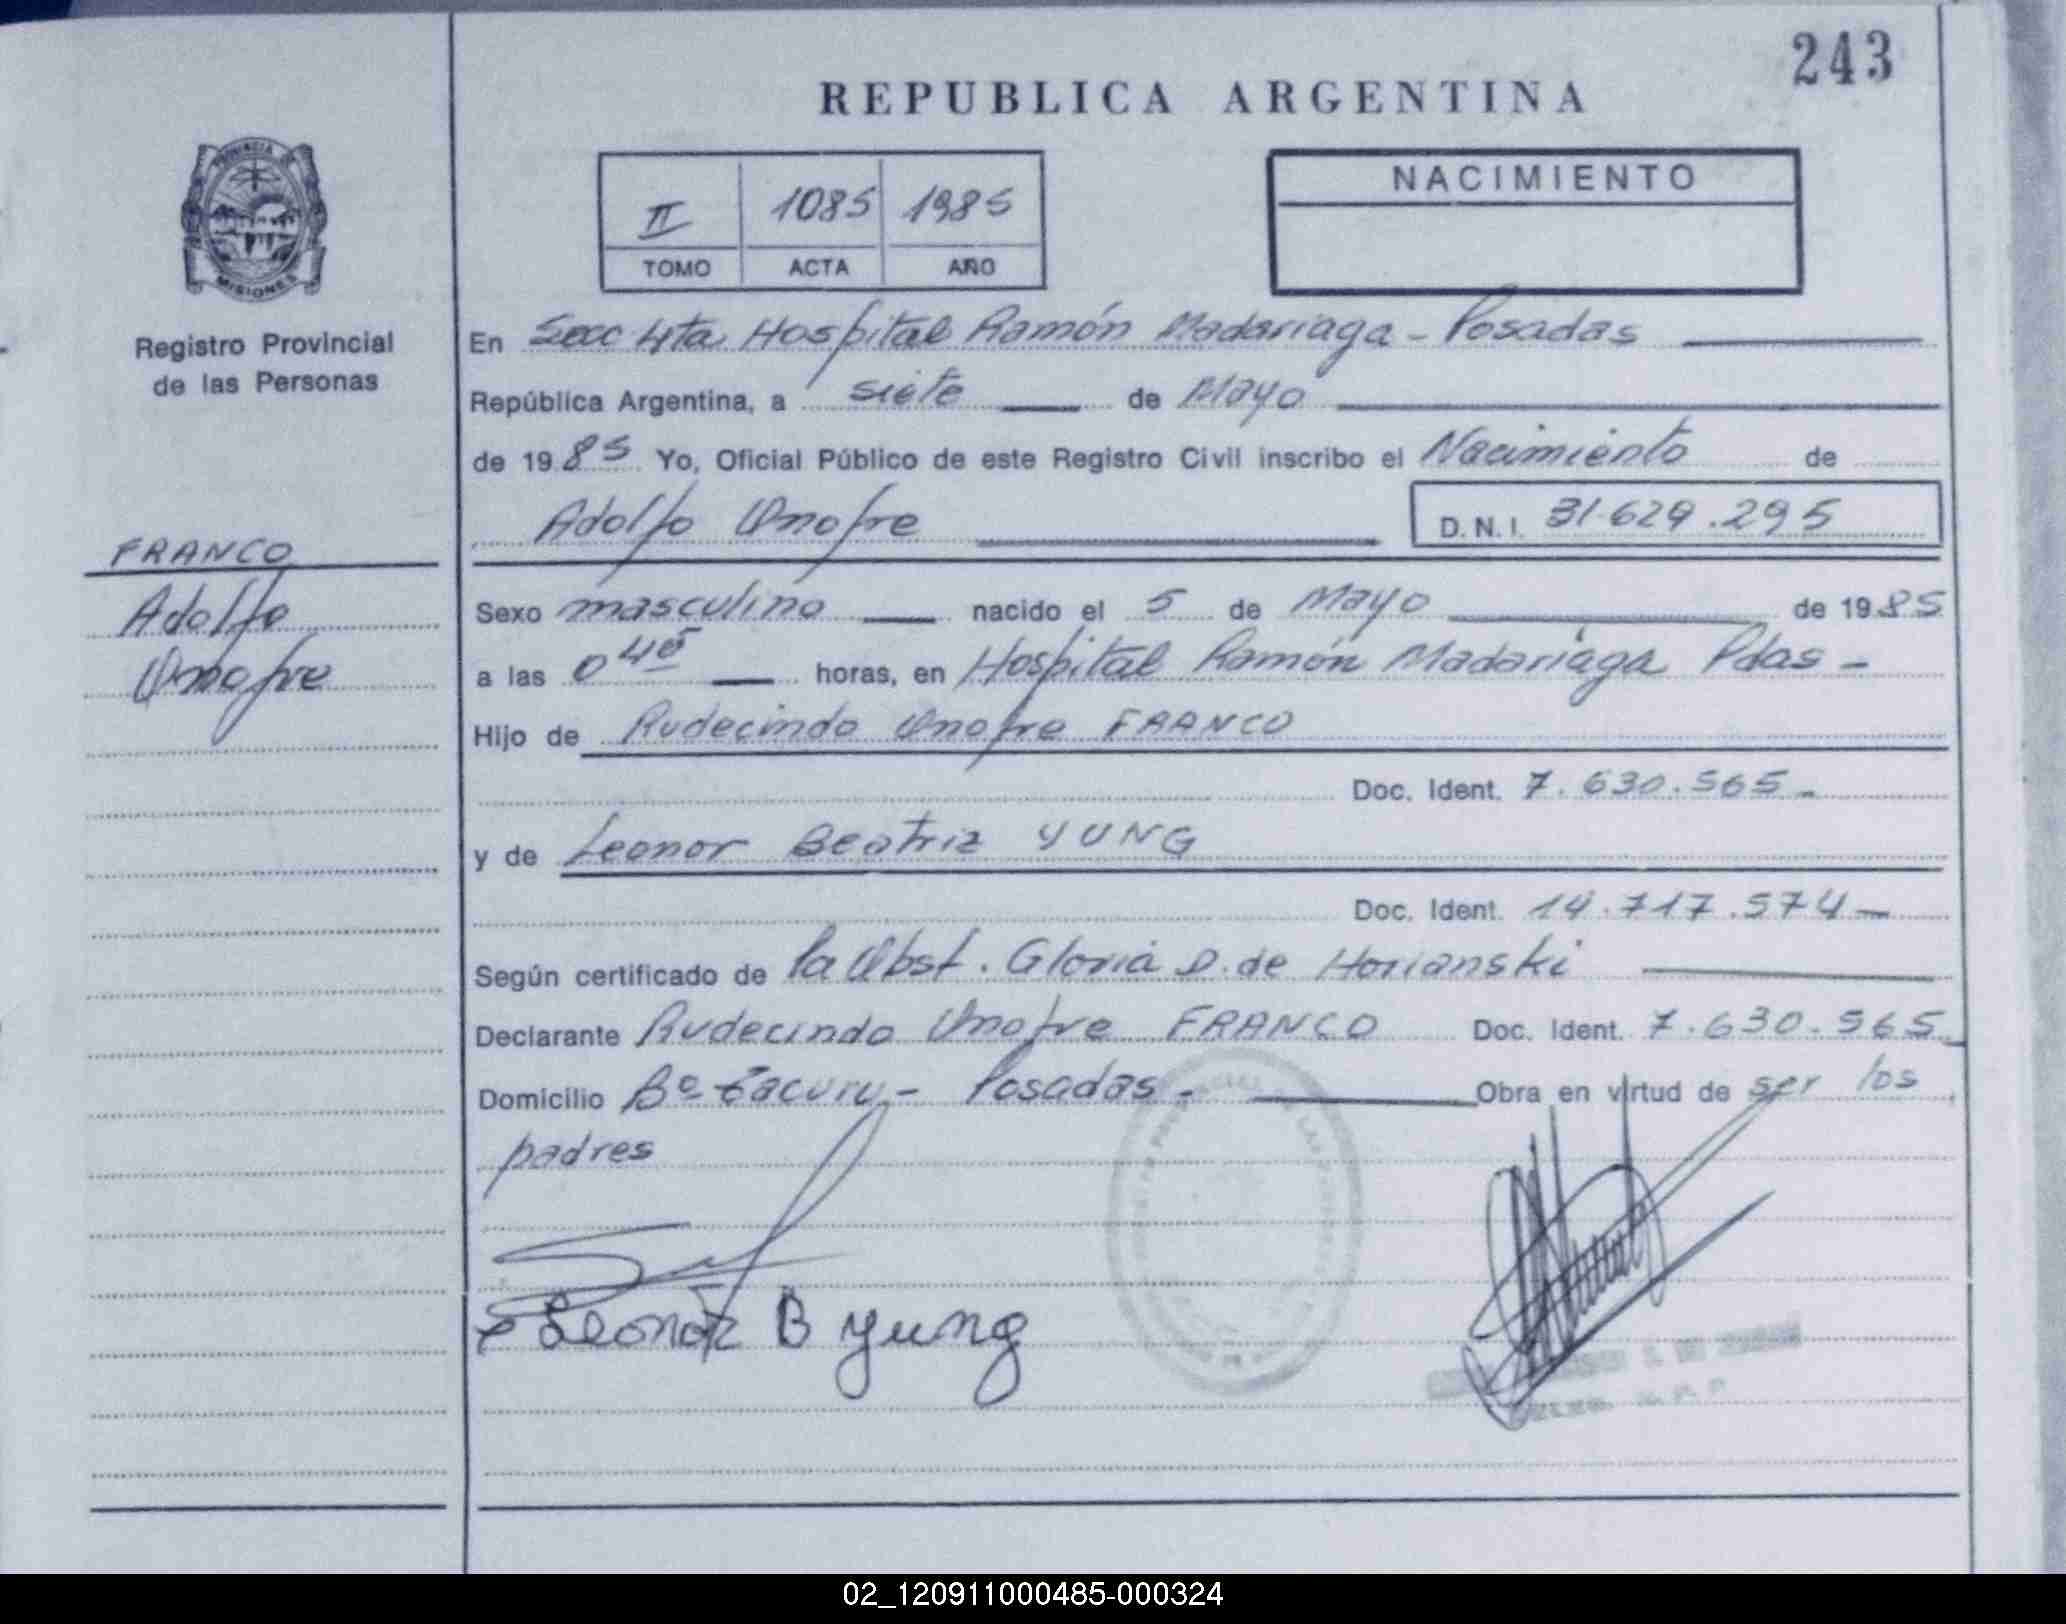 243
REPUBLICA ARGENTINA
PROVINCIA DE
MISIONES
Registro Provincial
de las Personas
II 1085 1985
TOMO ACTA AÑO
NACIMIENTO
En Secc 4ta Hospital Ramón Madariaga - Posadas
República Argentina, a siete de Mayo
de 1985 Yo, Oficial Público de este Registro Civil inscribo el Nacimiento de
Adolfo Onofre D.N.I. 31.629.295
FRANCO
Adolfo
Onofre
Sexo masculino nacido el 5 de Mayo de 1985
a las 0 45 horas, en Hospital Ramón Madariaga Pdas -
Hijo de Rudecindo Onofre FRANCO
Doc. Ident. 7.630.565 -
y de Leonor Beatriz YUNG
Doc. Ident. 14.717.574 -
Según certificado de la Obst. Gloria D. de Horianski
Declarante Rudecindo Onofre FRANCO Doc. Ident. 7.630.565
Domicilio Bº Tacuru - Posadas - Obra en virtud de ser los
padres
Leonor B Yung
02_120911000485-000324